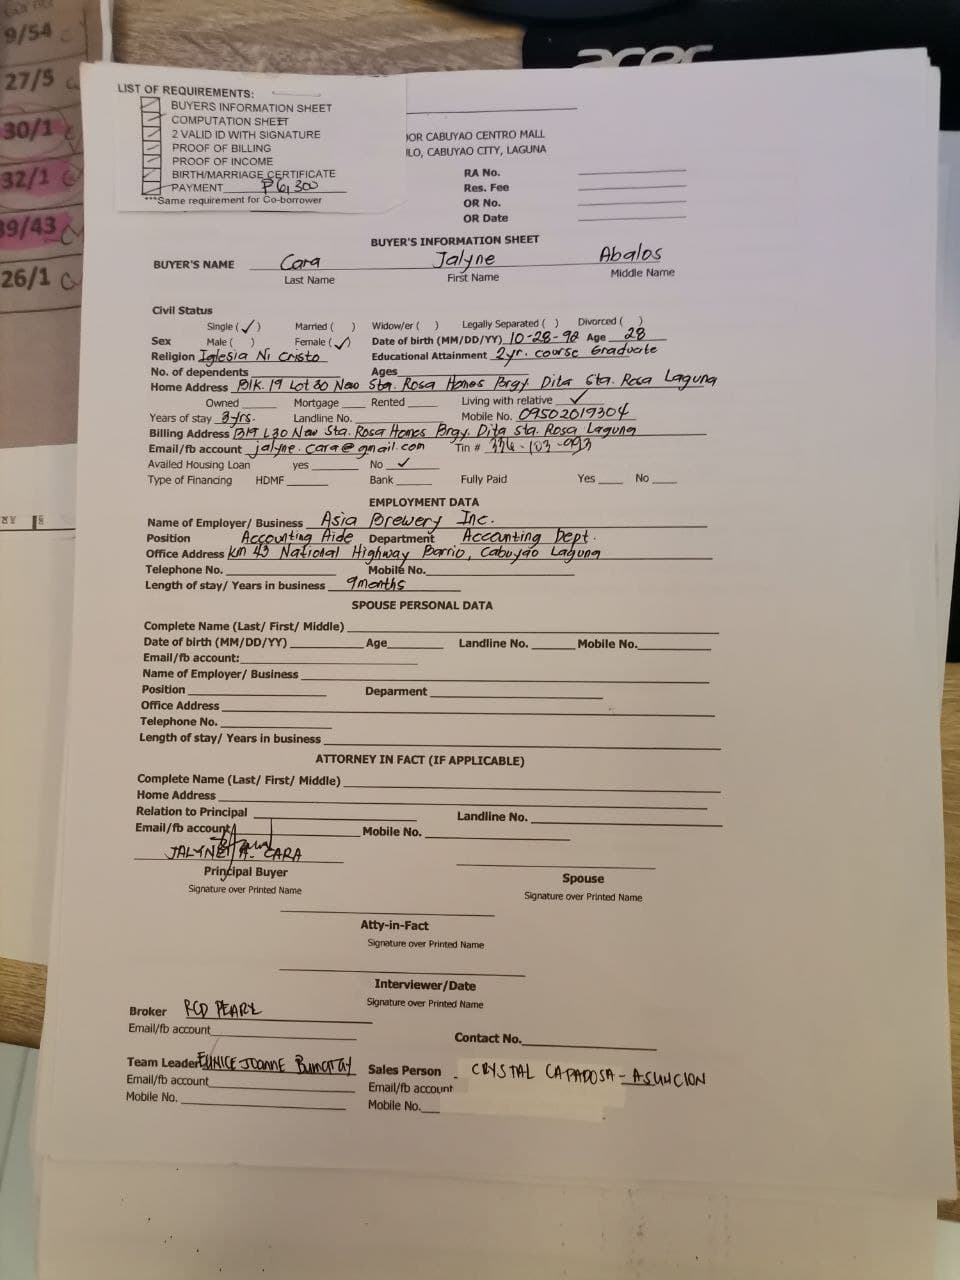 9/54
27/5
30/1
32/1
39/43
26/1
acer
LIST OF REQUIREMENTS:
BUYERS INFORMATION SHEET
COMPUTATION SHEET
2 VALID ID WITH SIGNATURE
PROOF OF BILLING
PROOF OF INCOME
BIRTH/MARRIAGE CERTIFICATE
PAYMENT ₱6,300
***Same requirement for Co-borrower
OR CABUYAO CENTRO MALL
LO, CABUYAO CITY, LAGUNA
RA No.
Res. Fee
OR No.
OR Date
BUYER'S INFORMATION SHEET
BUYER'S NAME Cara Jalyne Abalos
Last Name First Name Middle Name
Civil Status
Single (✓) Married ( ) Widow/er ( ) Legally Separated ( ) Divorced ( )
Sex Male ( ) Female (✓) Date of birth (MM/DD/YY) 10-28-92 Age 28
Religion Iglesia Ni Cristo Educational Attainment 2yr. course Graduate
No. of dependents Ages
Home Address Blk. 19 Lot 30 New Sta. Rosa Homes Brgy Dita Sta. Rosa Laguna
Owned Mortgage Rented Living with relative ✓
Years of stay 3yrs. Landline No. Mobile No. 09502019304
Billing Address B19 L30 New Sta. Rosa Homes Brgy. Dita Sta. Rosa Laguna
Email/fb account jalyne.cara@gmail.com Tin # 336-103-093
Availed Housing Loan yes No ✓
Type of Financing HDMF Bank Fully Paid Yes No
EMPLOYMENT DATA
Name of Employer/ Business Asia Brewery Inc.
Position Accounting Aide Department Accounting Dept.
Office Address Km 43 National Highway Barrio, Cabuyao Laguna
Telephone No. Mobile No.
Length of stay/ Years in business 9months
SPOUSE PERSONAL DATA
Complete Name (Last/ First/ Middle)
Date of birth (MM/DD/YY) Age Landline No. Mobile No.
Email/fb account:
Name of Employer/ Business
Position Deparment
Office Address
Telephone No.
Length of stay/ Years in business
ATTORNEY IN FACT (IF APPLICABLE)
Complete Name (Last/ First/ Middle)
Home Address
Relation to Principal Landline No.
Email/fb account Mobile No.
JALYNE A. CARA
Principal Buyer Spouse
Signature over Printed Name Signature over Printed Name
Atty-in-Fact
Signature over Printed Name
Interviewer/Date
Signature over Printed Name
Broker RCD PEARL
Email/fb account Contact No.
Team Leader EUNICE JOANNE Bumatay Sales Person CRYSTAL CAPADOSA-ASUNCION
Email/fb account Email/fb account
Mobile No. Mobile No.